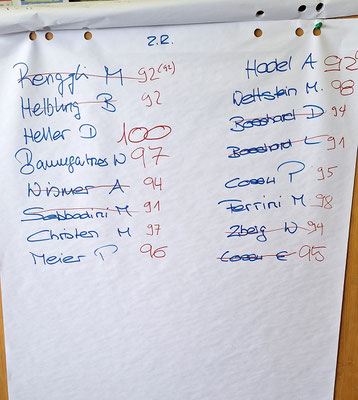 Z.R.
Renggli M 92 (92)
Helbling B 92
Heller D 100
Baumgartner W 97
Widmer A 94
Sabbadini M 91
Christen M 97
Meier P 96
Hodel A 92
Wettstein M. 98
Bosshard D 94
Bosshard L 91
P 95
Ferrini M 98
Zberg W 94
E 95